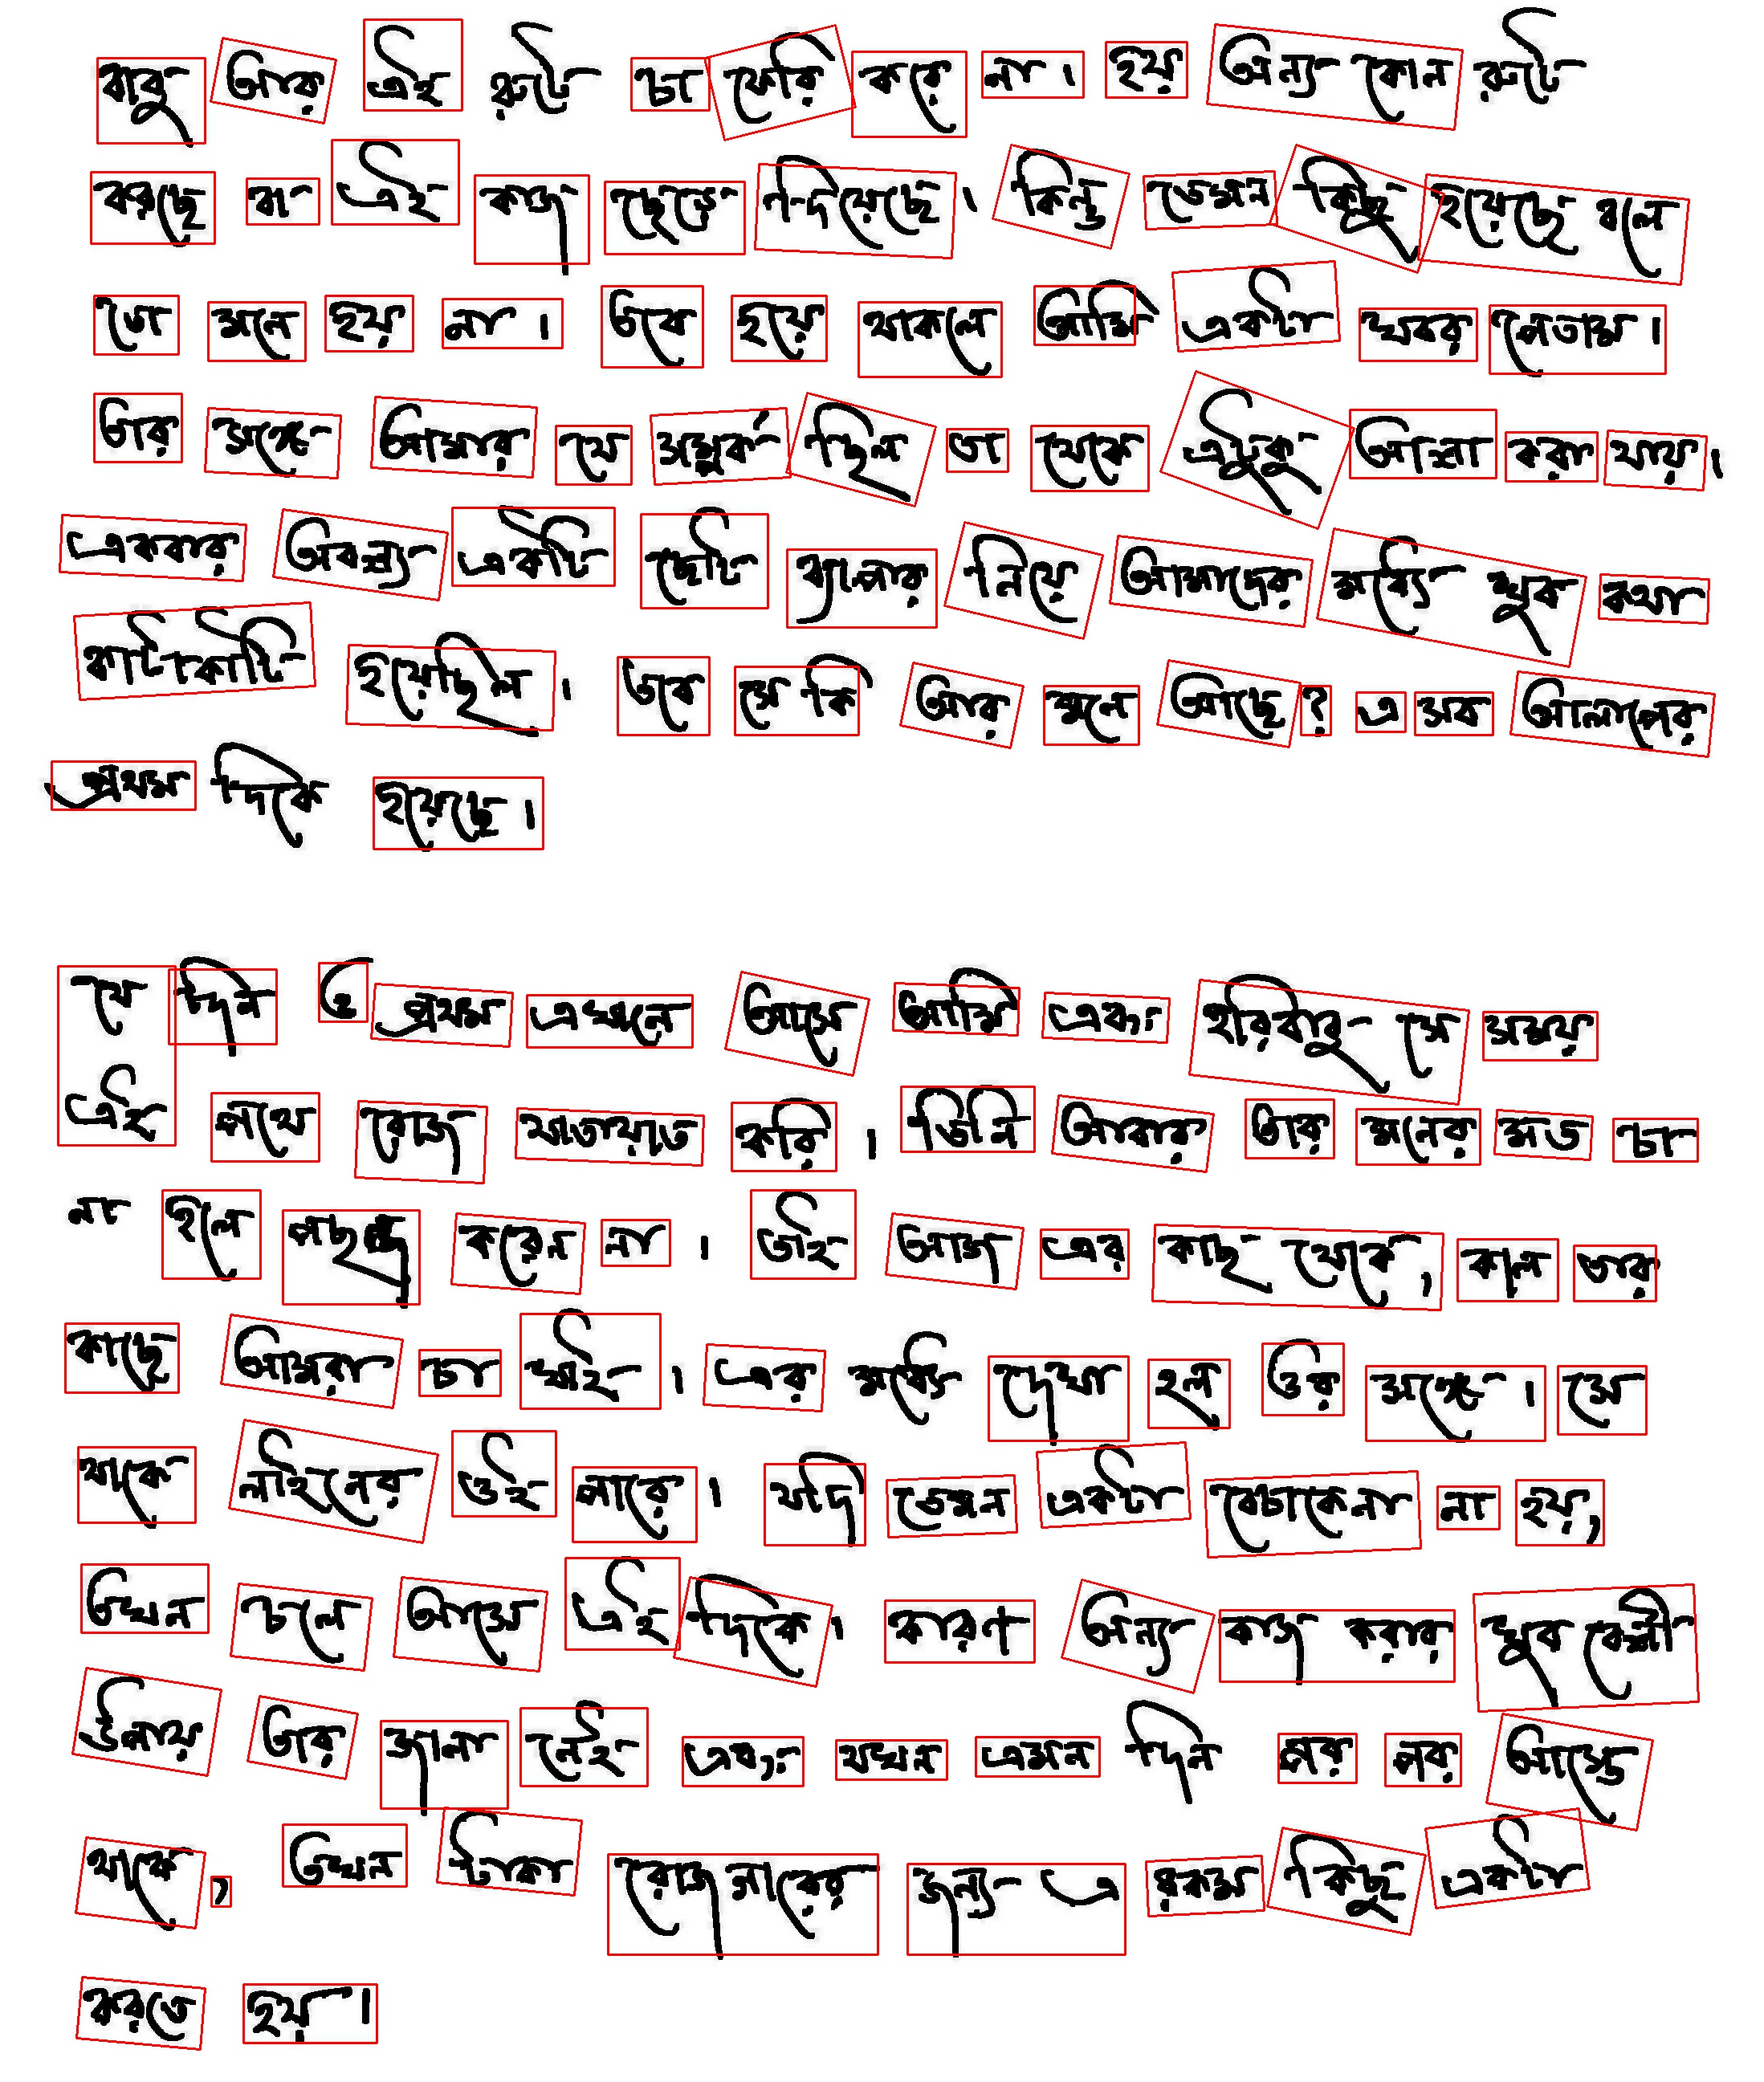 বাবু আর এই রুটে চা ফেরি করে না। হয় অন্য কোন রুটে
করছে বা এই কাজ ছেড়ে দিয়েছে। কিন্তু তেমন কিছু হয়েছে বলে
তো মনে হয় না। তবে হয়ে থাকলে আমি একটা খবর পেতাম।
তার সঙ্গে আমার যে সম্পর্ক ছিল তা থেকে এটুকু আশা করা যায়।
একবার অবশ্য একটি ছোট ব্যাপার নিয়ে আমাদের মধ্যে খুব কথা
কাটাকাটি হয়েছিল। তবে সে কি আর মনে আছে? এ সব আলাপের
প্রথম দিকে হয়েছে।
যে দিন ও প্রথম এখানে আসে আমি এবং হরিবাবু সে সময়
এই পথে রোজ যাতায়াত করি। তিনি আবার তার মনের মত চা
না হলে পছন্দ করেন না। তাই আজ এর কাছ থেকে, কাল তার
কাছে আমরা চা খাই। এর মধ্যে দেখা হল ওর সঙ্গে। সে
থাকে লাইনের ওই পারে। যদি তেমন একটা বেচাকেনা না হয়,
তখন চলে আসে এই দিকে। কারণ অন্য কাজ করার খুব বেশী
উপায় তার জানা নেই এবং যখন এমন দিন পর পর আসতে
থাকে, তখন টাকা রোজগারের জন্য এ রকম কিছু একটা
করতে হয়।